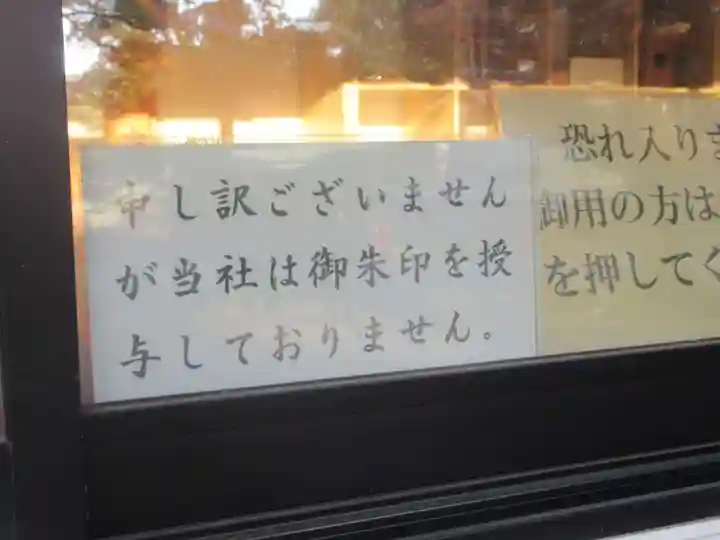 申し訳ございません
が当社は御朱印を授
与しておりません。
恐れ入りま
御用の方は
を押してく